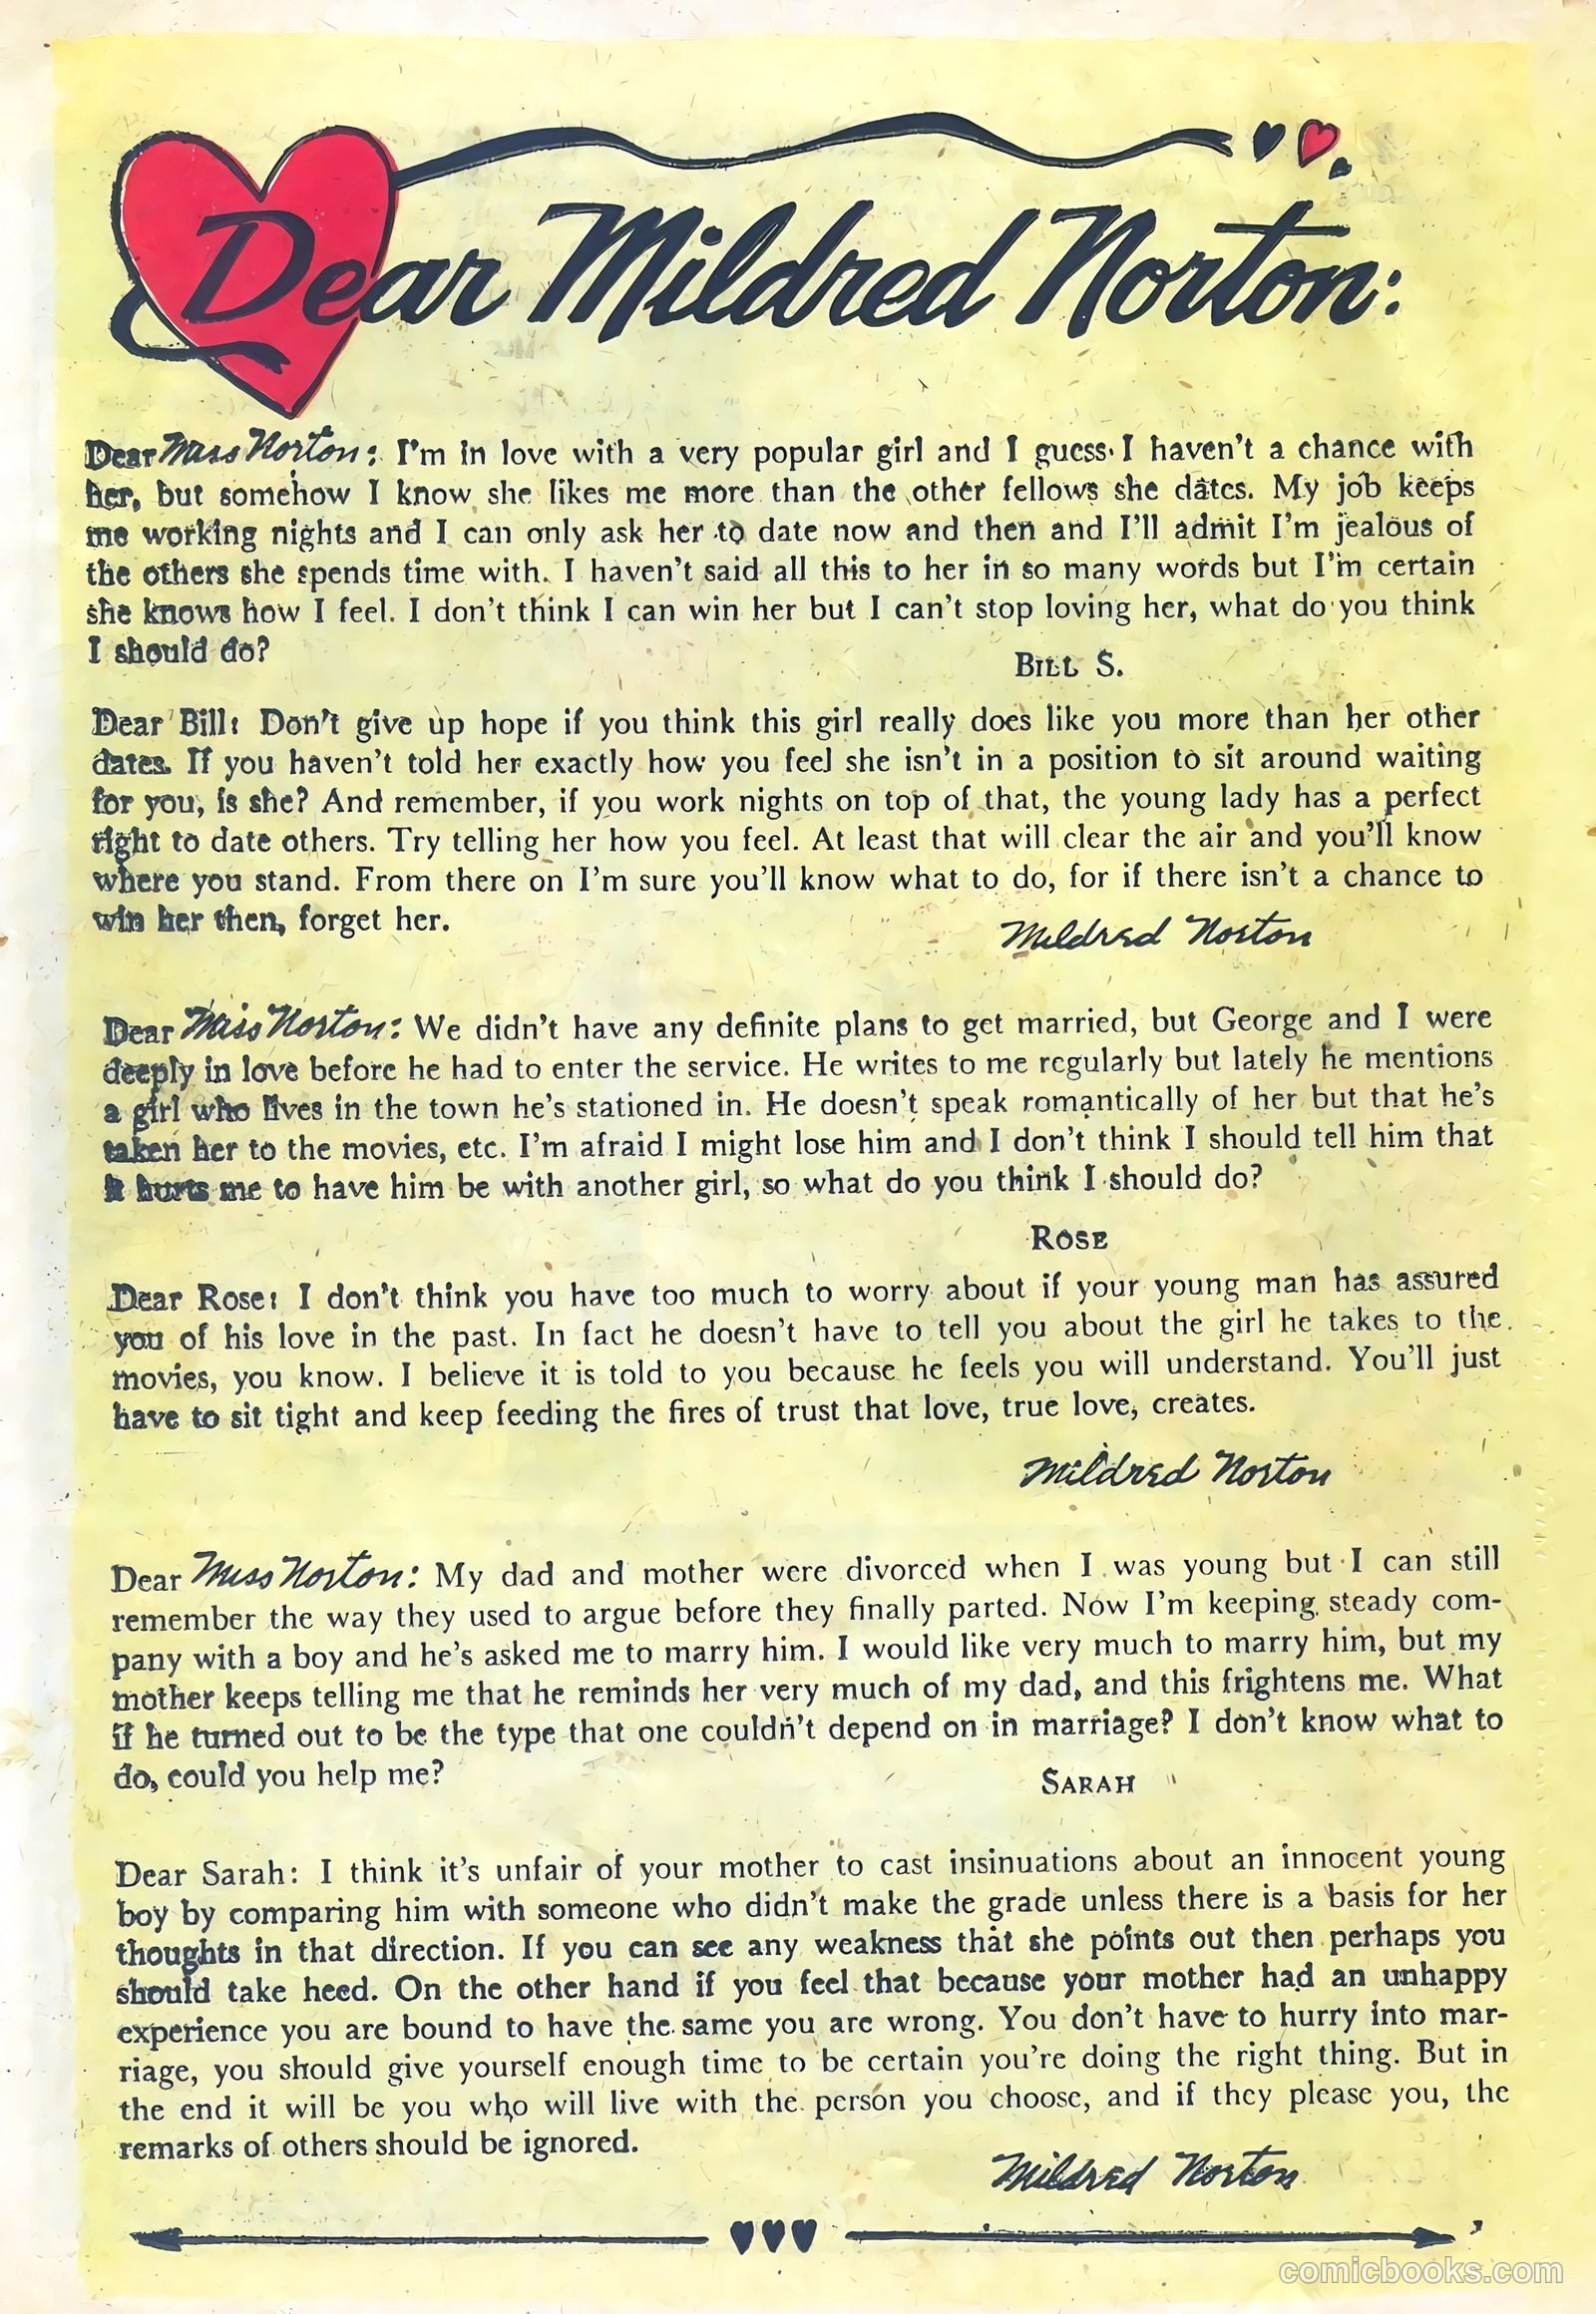 Dear Mildred Norton:
Dear Miss Norton: I'm in love with a very popular girl and I guess I haven't a chance with
her, but somehow I know she likes me more than the other fellows she dates. My job keeps
me working nights and I can only ask her to date now and then and I'll admit I'm jealous of
the others she spends time with. I haven't said all this to her in so many words but I'm certain
she knows how I feel. I don't think I can win her but I can't stop loving her, what do you think
I should do?
BILL S.
Dear Bill: Don't give up hope if you think this girl really does like you more than her other
dates. If you haven't told her exactly how you feel she isn't in a position to sit around waiting
for you, is she? And remember, if you work nights on top of that, the young lady has a perfect
right to date others. Try telling her how you feel. At least that will clear the air and you'll know
where you stand. From there on I'm sure you'll know what to do, for if there isn't a chance to
win her then, forget her.
Mildred Norton
Dear Miss Norton: We didn't have any definite plans to get married, but George and I were
deeply in love before he had to enter the service. He writes to me regularly but lately he mentions
a girl who lives in the town he's stationed in. He doesn't speak romantically of her but that he's
taken her to the movies, etc. I'm afraid I might lose him and I don't think I should tell him that
it hurts me to have him be with another girl, so what do you think I should do?
ROSE
Dear Rose: I don't think you have too much to worry about if your young man has assured
you of his love in the past. In fact he doesn't have to tell you about the girl he takes to the
movies, you know. I believe it is told to you because he feels you will understand. You'll just
have to sit tight and keep feeding the fires of trust that love, true love, creates.
Mildred Norton
Dear Miss Norton: My dad and mother were divorced when I was young but I can still
remember the way they used to argue before they finally parted. Now I'm keeping steady com-
pany with a boy and he's asked me to marry him. I would like very much to marry him, but my
mother keeps telling me that he reminds her very much of my dad, and this frightens me. What
if he turned out to be the type that one couldn't depend on in marriage? I don't know what to
do, could you help me?
SARAH
Dear Sarah: I think it's unfair of your mother to cast insinuations about an innocent young
boy by comparing him with someone who didn't make the grade unless there is a basis for her
thoughts in that direction. If you can see any weakness that she points out then perhaps you
should take heed. On the other hand if you feel that because your mother had an unhappy
experience you are bound to have the same you are wrong. You don't have to hurry into mar-
riage, you should give yourself enough time to be certain you're doing the right thing. But in
the end it will be you who will live with the person you choose, and if they please you, the
remarks of others should be ignored.
Mildred Norton
comicbooks.com